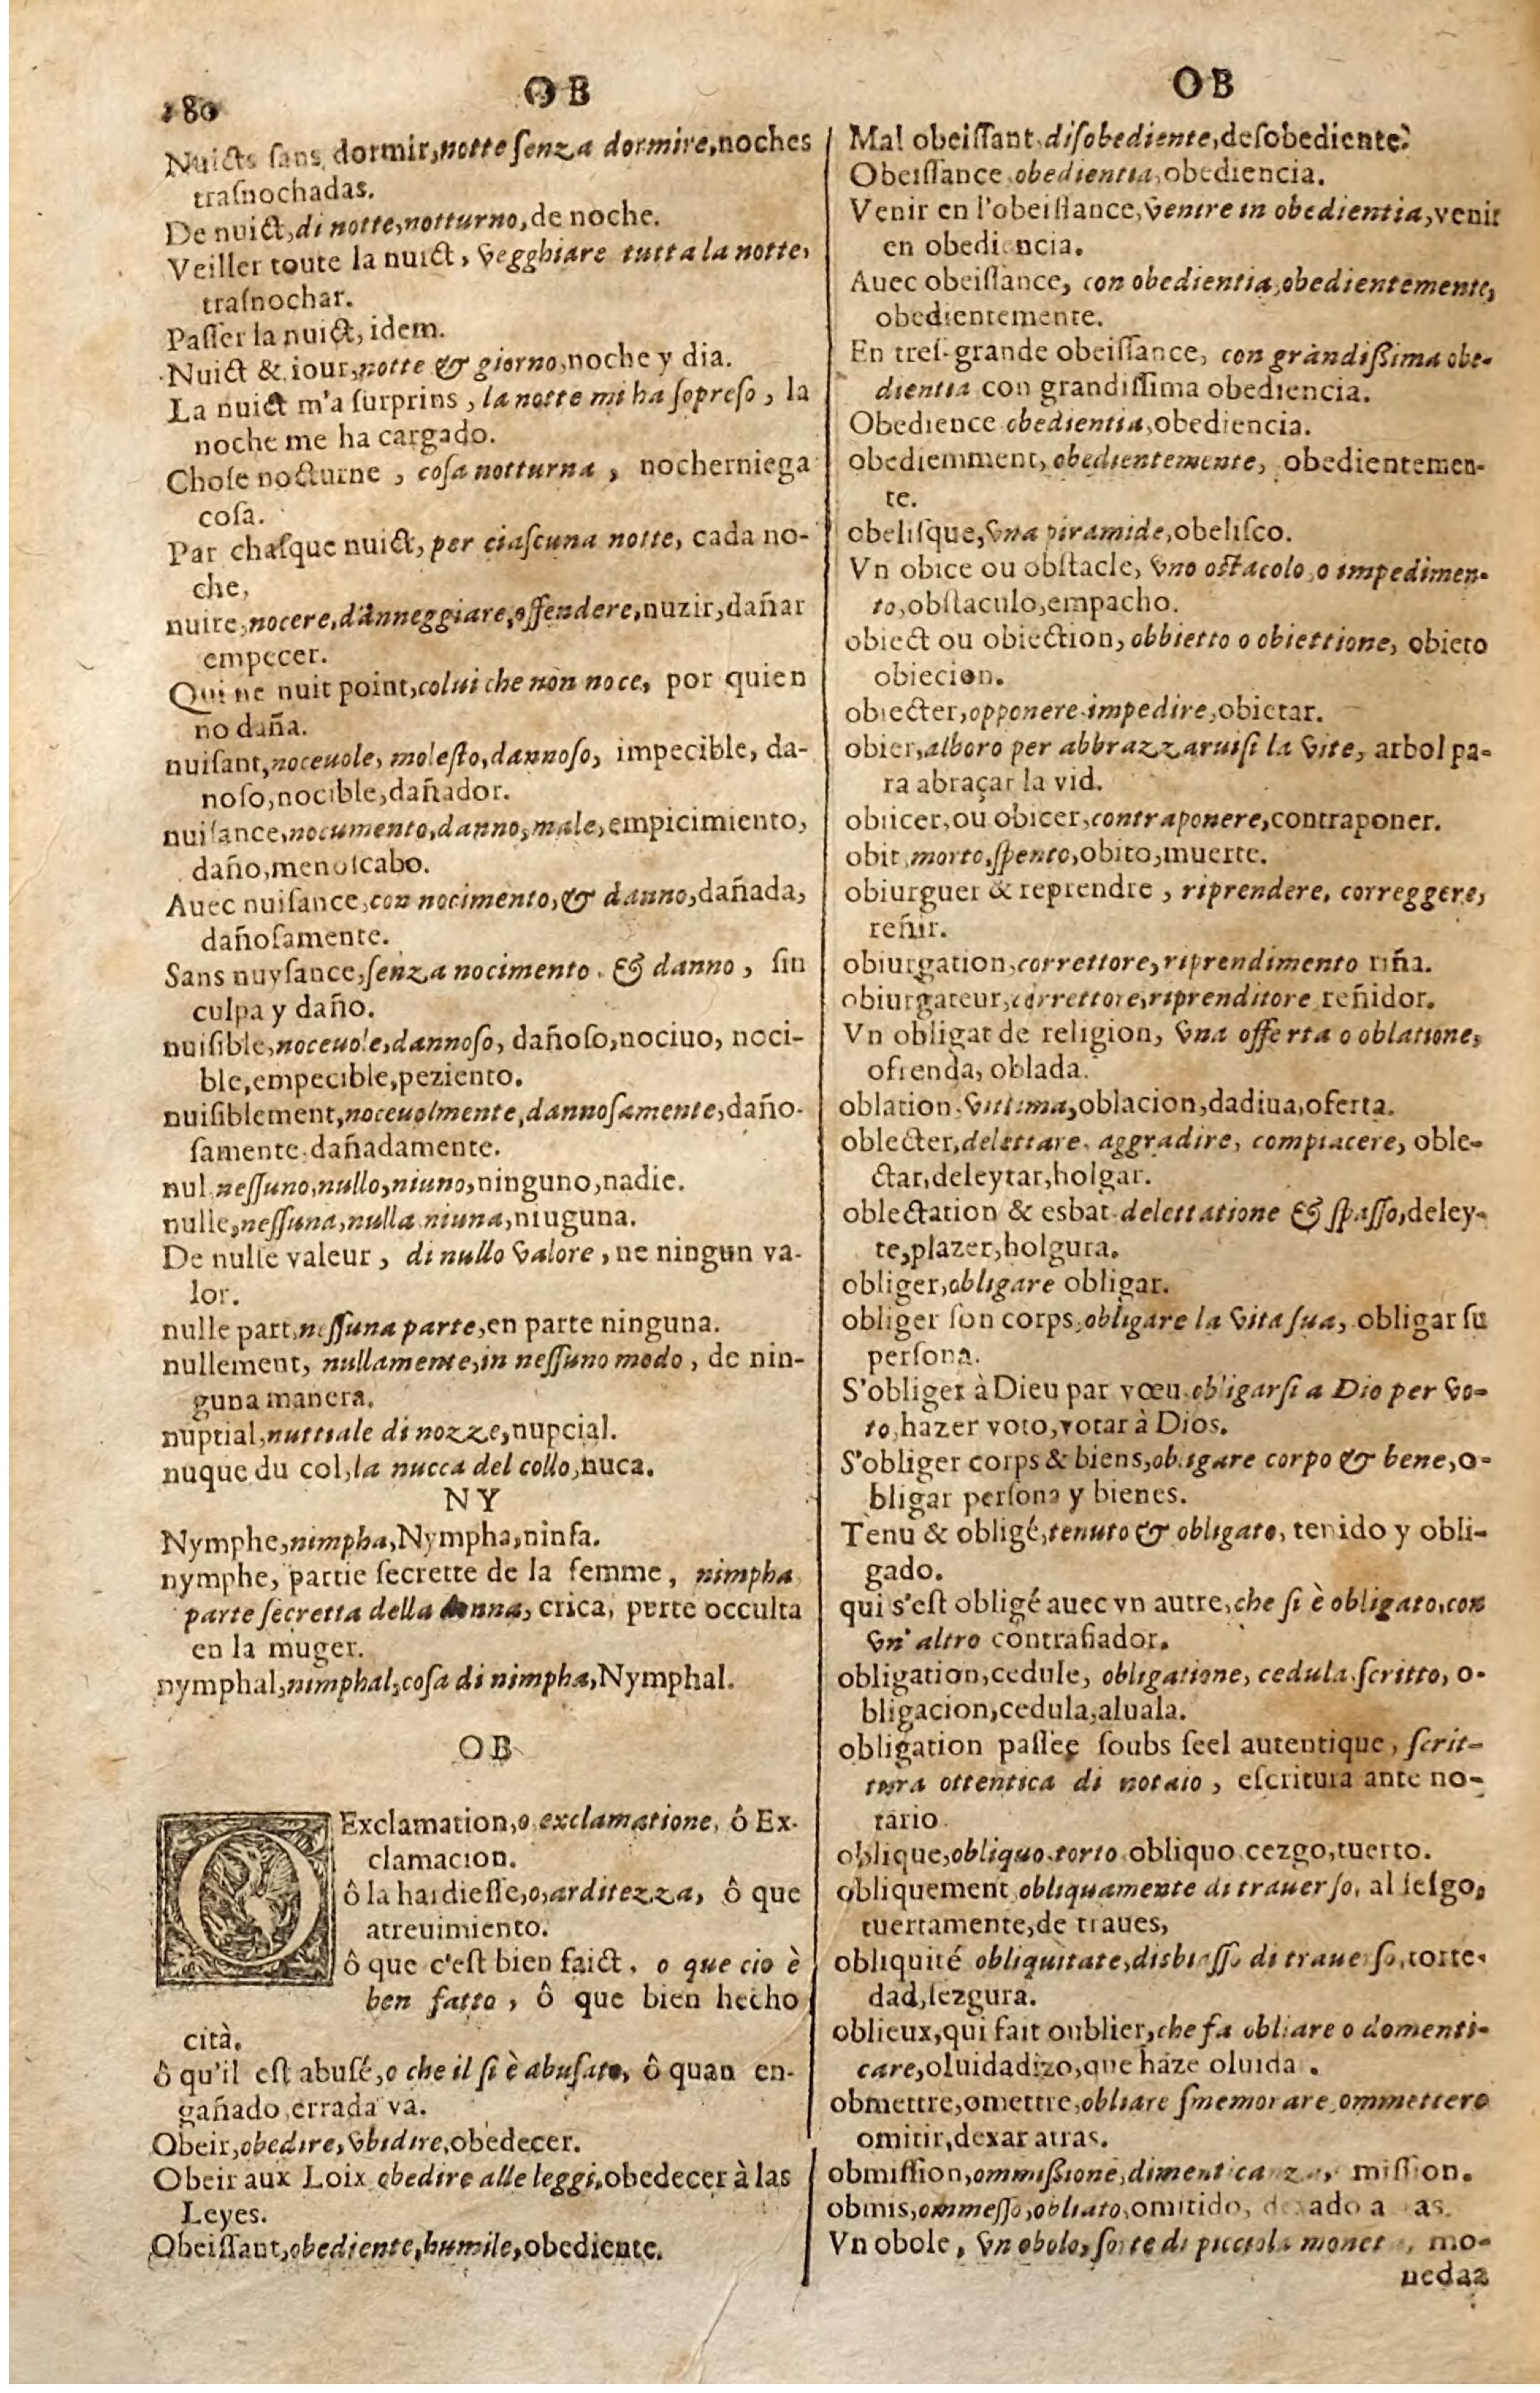 280
OB
OB
Nuicts sans dormir, notte ſenza dormire, noches
traſnochadas.
De nuict, di notte, notturno, de noche.
Veiller toute la nuict, vegghiare tutta la notte,
traſnochar.
Paſſer la nuict, idem.
Nuict & iour, notte & giorno, noche y dia.
La nuict m'a ſurprins, la notte mi ha ſopreſo, la
noche me ha cargado.
Choſe nocturne, coſa notturna, nocherniega
coſa.
Par chaſque nuict, per ciaſcuna notte, cada no-
che,
nuire, nocere, danneggiare, offendere, nuzir, dañar
empecer.
Qui ne nuit point, colui che non noce, por quien
no daña.
nuiſant, noceuole, moleſto, dannoſo, impecible, da-
noſo, nocible, dañador.
nuiſance, nocumento, danno, male, empicimiento,
daño, menoſcabo.
Auec nuiſance, con nocimento, & danno, dañada,
dañoſamente.
Sans nuyſance, ſenza nocimento. & danno, ſin
culpa y daño.
nuiſible, noceuole, dannoſo, dañoſo, nociuo, noci-
ble, empecible, peziento.
nuiſiblement, noceuolmente, dannoſamente, daño-
ſamente. dañadamente.
nul neſſuno, nullo, niuno, ninguno, nadie.
nulle, neſſuna, nulla niuna, niuguna.
De nulle valeur, di nullo valore, ne ningun va-
lor.
nulle part, neſſuna parte, en parte ninguna.
nullement, nullamente, in neſſuno modo, de nin-
guna manera.
nuptial, nuttiale di nozze, nupcial.
nuque du col, la nucca del collo, nuca.
NY
Nymphe, nimpha, Nympha, ninfa.
nymphe, partie ſecrette de la femme, nimpha
parte ſecretta della donna, crica, perte occulta
en la muger.
nymphal, nimphal, coſa di nimpha, Nymphal.
OB
O Exclamation, o exclamatione, ô Ex-
clamacion.
ô la hardieſſe, o, arditezza, ô que
atreuimiento.
ô que c'eſt bien faict, o que cio è
ben fatto, ô que bien hecho
cità.
ô qu'il eſt abuſé, o che il ſi è abuſato, ô quan en-
gañado, errada va.
Obeir, obedire, vbidire, obedecer.
Obeir aux Loix obedire alle leggi, obedecer à las
Leyes.
Obeiſſant, obediente, humile, obediente.
Mal obeiſſant, diſobediente, deſobediente.
Obeiſſance, obedientia, obediencia.
Venir en l'obeiſſance, venire in obedientia, venir
en obediencia.
Auec obeiſſance, con obedientia, obedientemente,
obedientemente.
En treſ-grande obeiſſance, con grandiſſima obe-
dientia con grandiſſima obediencia.
Obedience obedientia, obediencia.
obediemment, obedientemente, obedientemen-
te.
obeliſque, vna piramide, obeliſco.
Vn obice ou obſtacle, vno oſtacolo, o impedimen-
to, obſtaculo, empacho.
obiect ou obiection, obbietto o obiettione, obieto
obiecion.
obiecter, opponere impedire, obietar.
obier, alboro per abbrazzaruiſi la vite, arbol pa-
ra abraçar la vid.
obiicer, ou obicer, contraponere, contraponer.
obit, morto, ſpento, obito, muerte.
obiurguer & reprendre, riprendere, correggere,
reñir.
obiurgation, correttore, riprendimento riña.
obiurgateur, correttore, riprenditore reñidor.
Vn obligat de religion, vna offerta o oblatione,
ofrenda, oblada.
oblation. vittima, oblacion, dadiua, oferta.
oblecter, delettare. aggradire, compiacere, oble-
ctar, deleytar, holgar.
oblectation & esbat. delettatione & ſpaſſo, deley-
te, plazer, holgura.
obliger, obligare obligar.
obliger ſon corps, obligare la vita ſua, obligar ſu
perſona.
S'obliger à Dieu par vœu, obligarſi a Dio per vo-
to, hazer voto, votar à Dios.
S'obliger corps & biens, obligare corpo & bene, o-
bligar perſona y bienes.
Tenu & obligé, tenuto & obligato, tenido y obli-
gado.
qui s'eſt obligé auec vn autre, che ſi è obligato, con
vn' altro contrafiador.
obligation, cedule, obligatione, cedula ſcritto, o-
bligacion, cedula, aluala.
obligation paſſee ſoubs ſeel autentique, ſcrit-
tura ottentica di notaio, eſcritura ante no-
tario.
oblique, obliquo. torto obliquo cezgo, tuerto.
obliquement obliquamente di trauerſo, al ſeſgo,
tuertamente, de traues,
obliquité obliquitate, disbiaſſo di trauerſo, torte-
dad, ſezgura.
oblieux, qui fait oublier, che fa obliare o domenti-
care, oluidadizo, que haze oluida.
obmettre, omettre, obliare ſmemorare, ommettere
omitir, dexar atras.
obmiſſion, ommiſſione, dimenticanza, miſſion.
obmis, ommeſſo, obliato, omitido, dexado a as.
Vn obole, vn obolo, ſorte di picciola moneta, mo-
nedaa